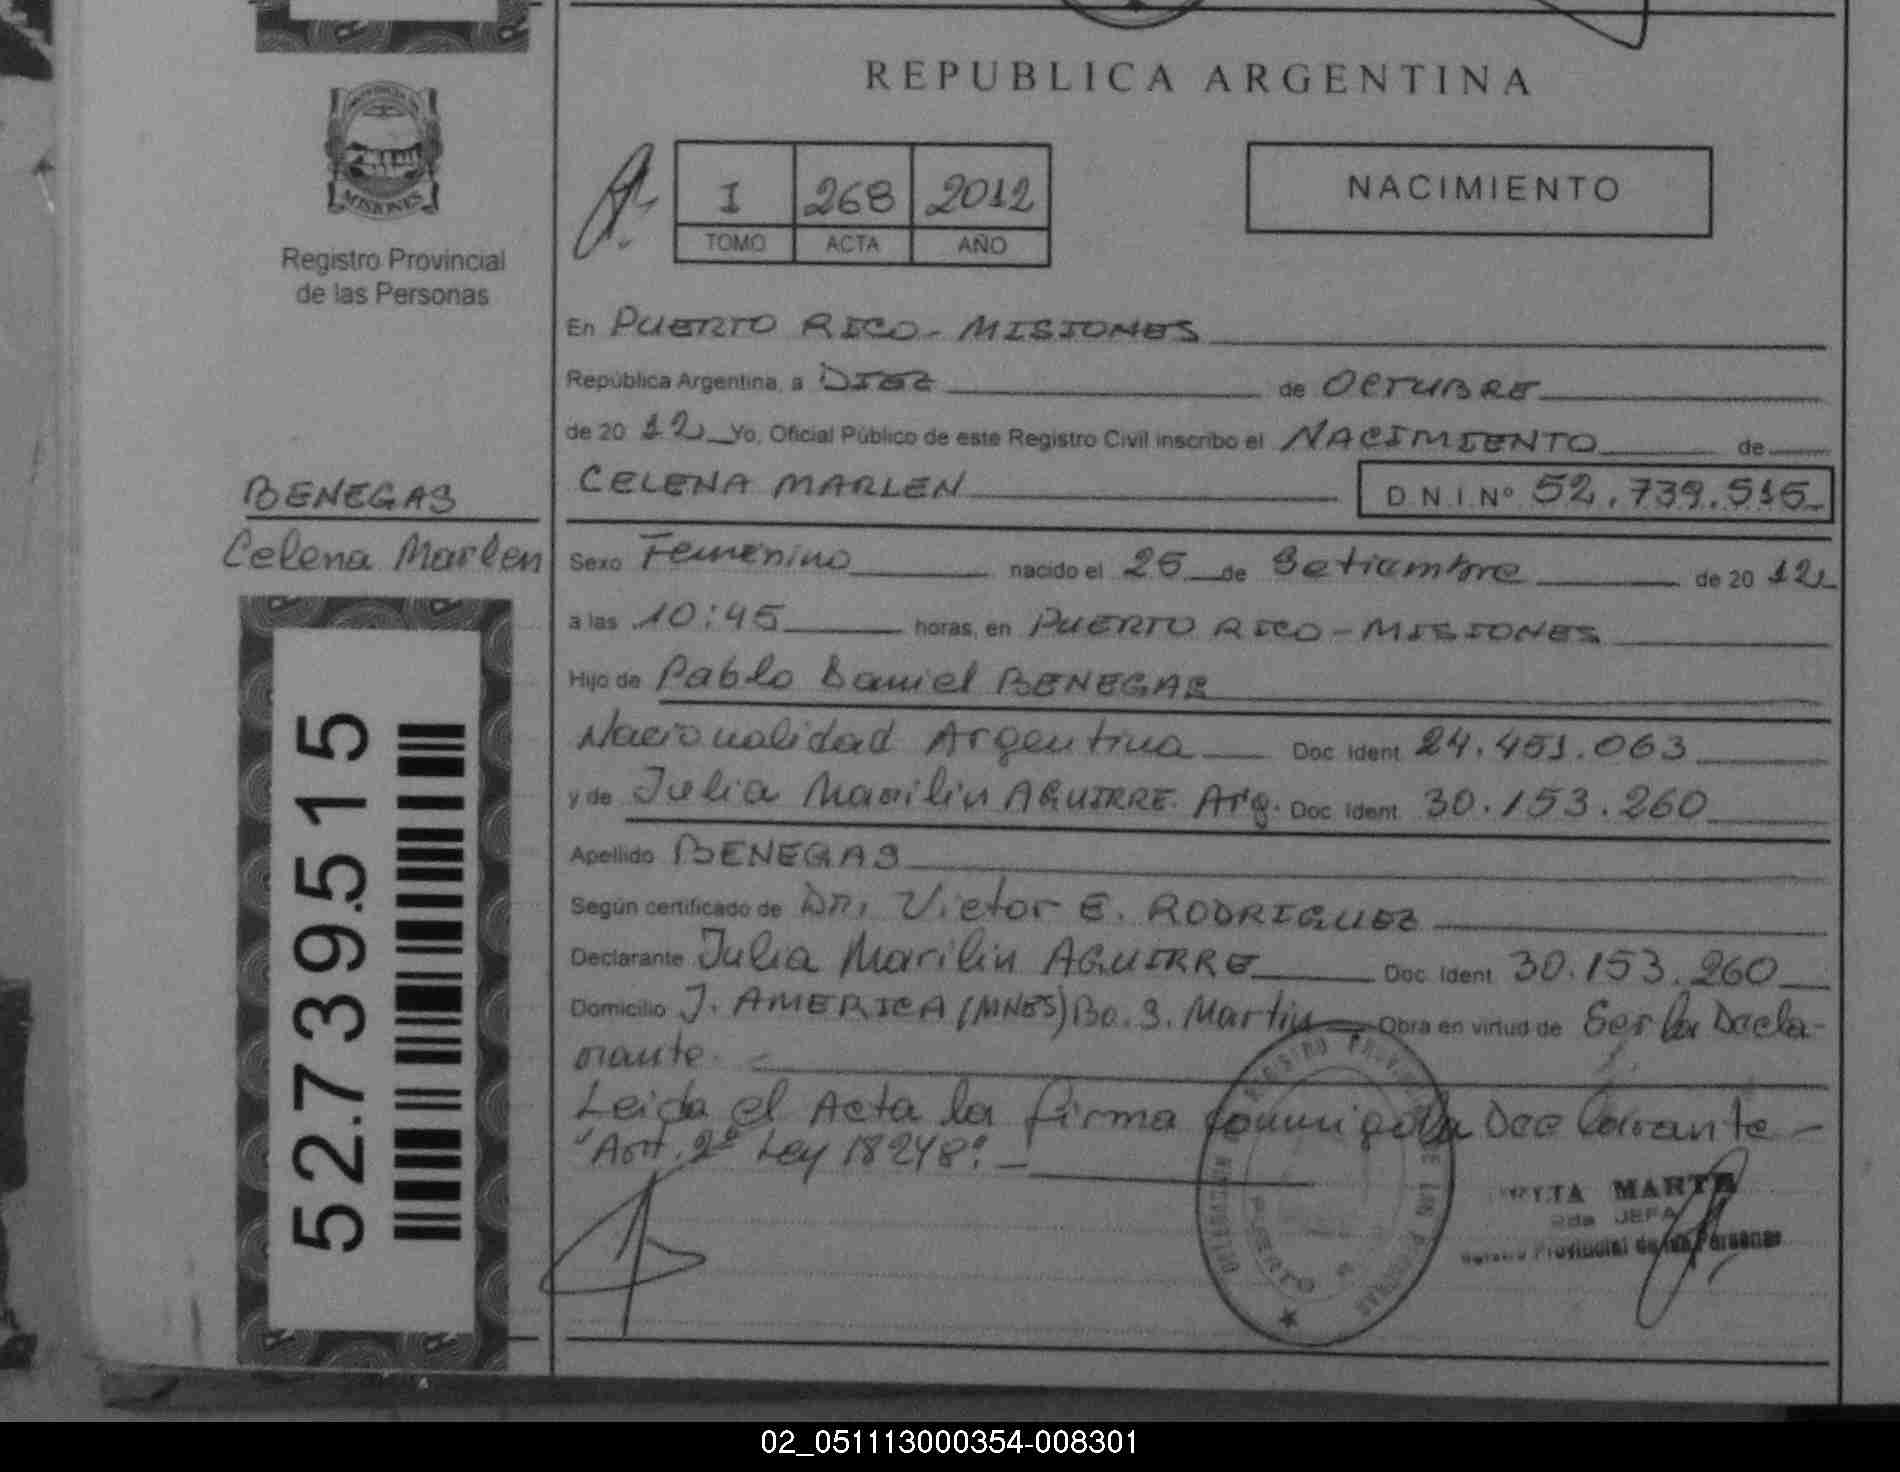 REPUBLICA ARGENTINA
MISIONES
Registro Provincial
de las Personas
I 268 2012
TOMO ACTA AÑO
NACIMIENTO
En PUERTO RICO - MISIONES
República Argentina, a DIEZ de OCTUBRE
de 20 12 Yo, Oficial Público de este Registro Civil inscribo el NACIMIENTO de
CELENA MARLEN D.N.I Nº 52.739.515
BENEGAS
Celena Marlen
Sexo Femenino nacido el 25 de Setiembre de 20 12
a las 10:45 horas, en PUERTO RICO - MISIONES
Hijo de Pablo Daniel BENEGAS
Nacionalidad Argentina Doc. Ident. 24.451.063
y de Julia Marilin AGUIRRE. Arg. Doc. Ident. 30.153.260
Apellido BENEGAS
Según certificado de DR. Victor E. RODRIGUEZ
Declarante Julia Marilin AGUIRRE Doc. Ident. 30.153.260
Domicilio J. AMERICA (MNES) Bo. S. Martin Obra en virtud de Ser la Decla-
rante.
Leida el Acta la firma conmigo la Declarante -
"Art. 2º Ley 18248". -
52.739.515
MARTA
JEFA
Provincial de las Personas
02_051113000354-008301